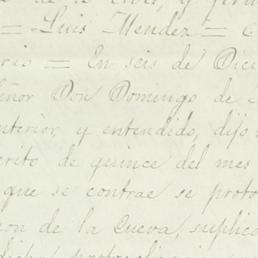 = Luis Mendez =
= En seis de Dici
eñor Don Domingo de
nterior y entendido, dijo
crito de quince del mes
que se contrae se proto
on de la Cueva, suplica